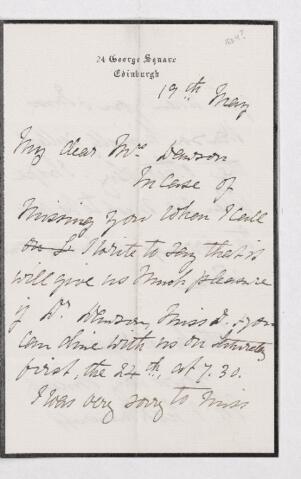 1884?
24 George Square
Edinburgh
19th May
My dear Mrs. Dawson
In case of
missing you when I call
on I write to say that it
will give us much pleasure
if Dr. Dawson, Miss D. & you
can dine with us on Saturday
first, the 24th, at 7.30.
I was very sorry to miss